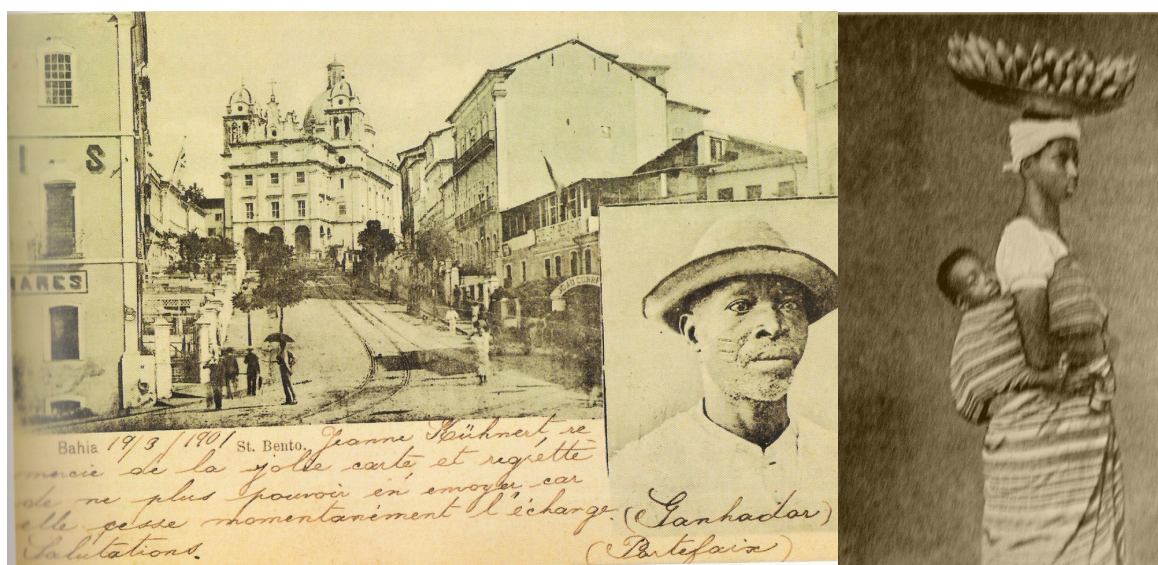 I S
MARES
Bahia 19/3/1901 St. Bento. Jeanne Kühnert re
mercie de la jolie carte et regrètte
de ne plus pouvoir en envoyer car
elle cesse momentanément l'échange.
Salutations.
(Ganhador)
(Portefaix)